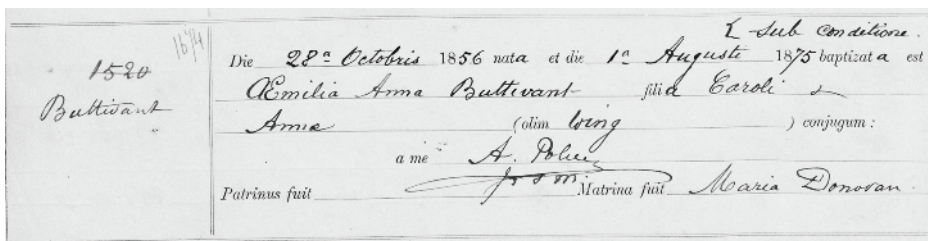 & sub conditione.
1520
Buttivant
Die 28ᵃ Octobris 1856 nata et die 1ᵃ Augusti 1875 baptizata est
Œmilia Anna Buttivant filia Caroli &
Anna (olim Wing ) conjugum :
a me A.
Patrinus fuit Matrina fuit Maria Donovan.